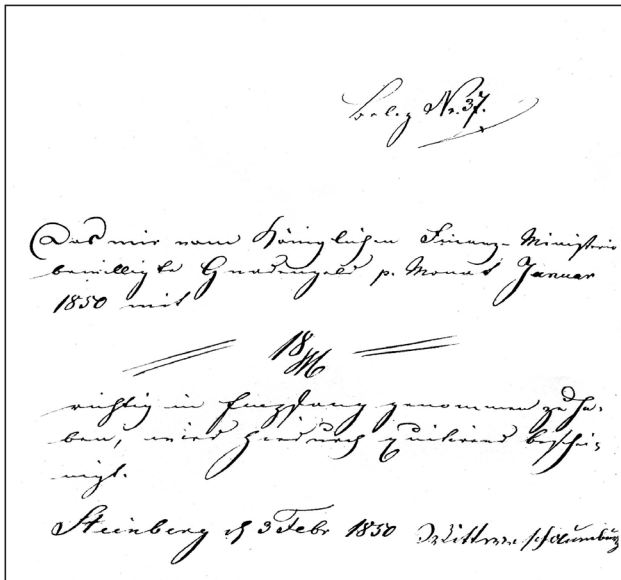 Beleg Nr. 37.
Das mir vom Königlichen Finanz-Ministerio
bewilligte Gnadengeld p. Monat Januar
1850 mit
18
richtig in Empfang genommen zu ha-
ben, wird hierdurch quitirend beschei-
nigt.
Steinberg d 3 Febr 1850 Wittwe Schaumburg